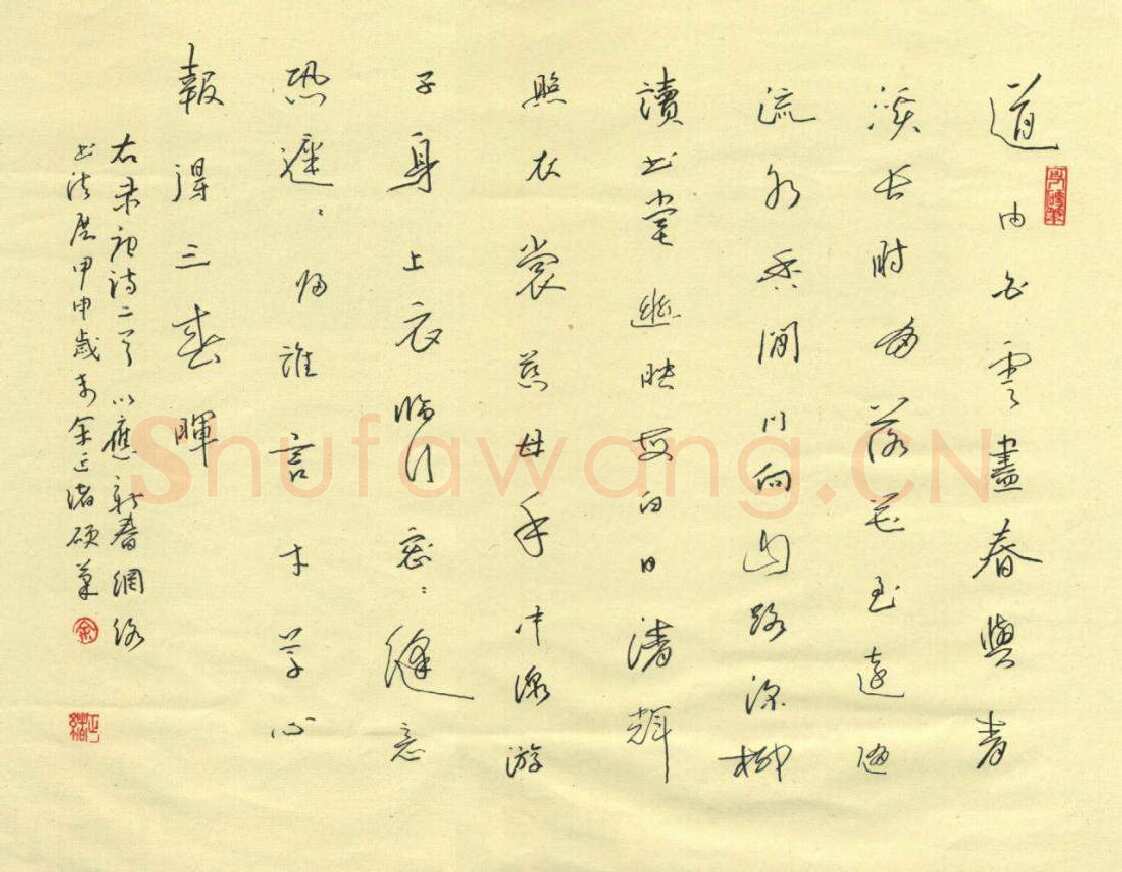 道由白雲盡春與青
溪长时有落花至遠隨
流水香閒门向山路深柳
讀书堂幽映每白日清輝
照衣裳慈母手中線游
子身上衣临行密々缝意
恐遲々归谁言寸草心
報得三春暉
右录唐诗二首以應新春網络
书法展甲申歲末金
Shufawang.CN